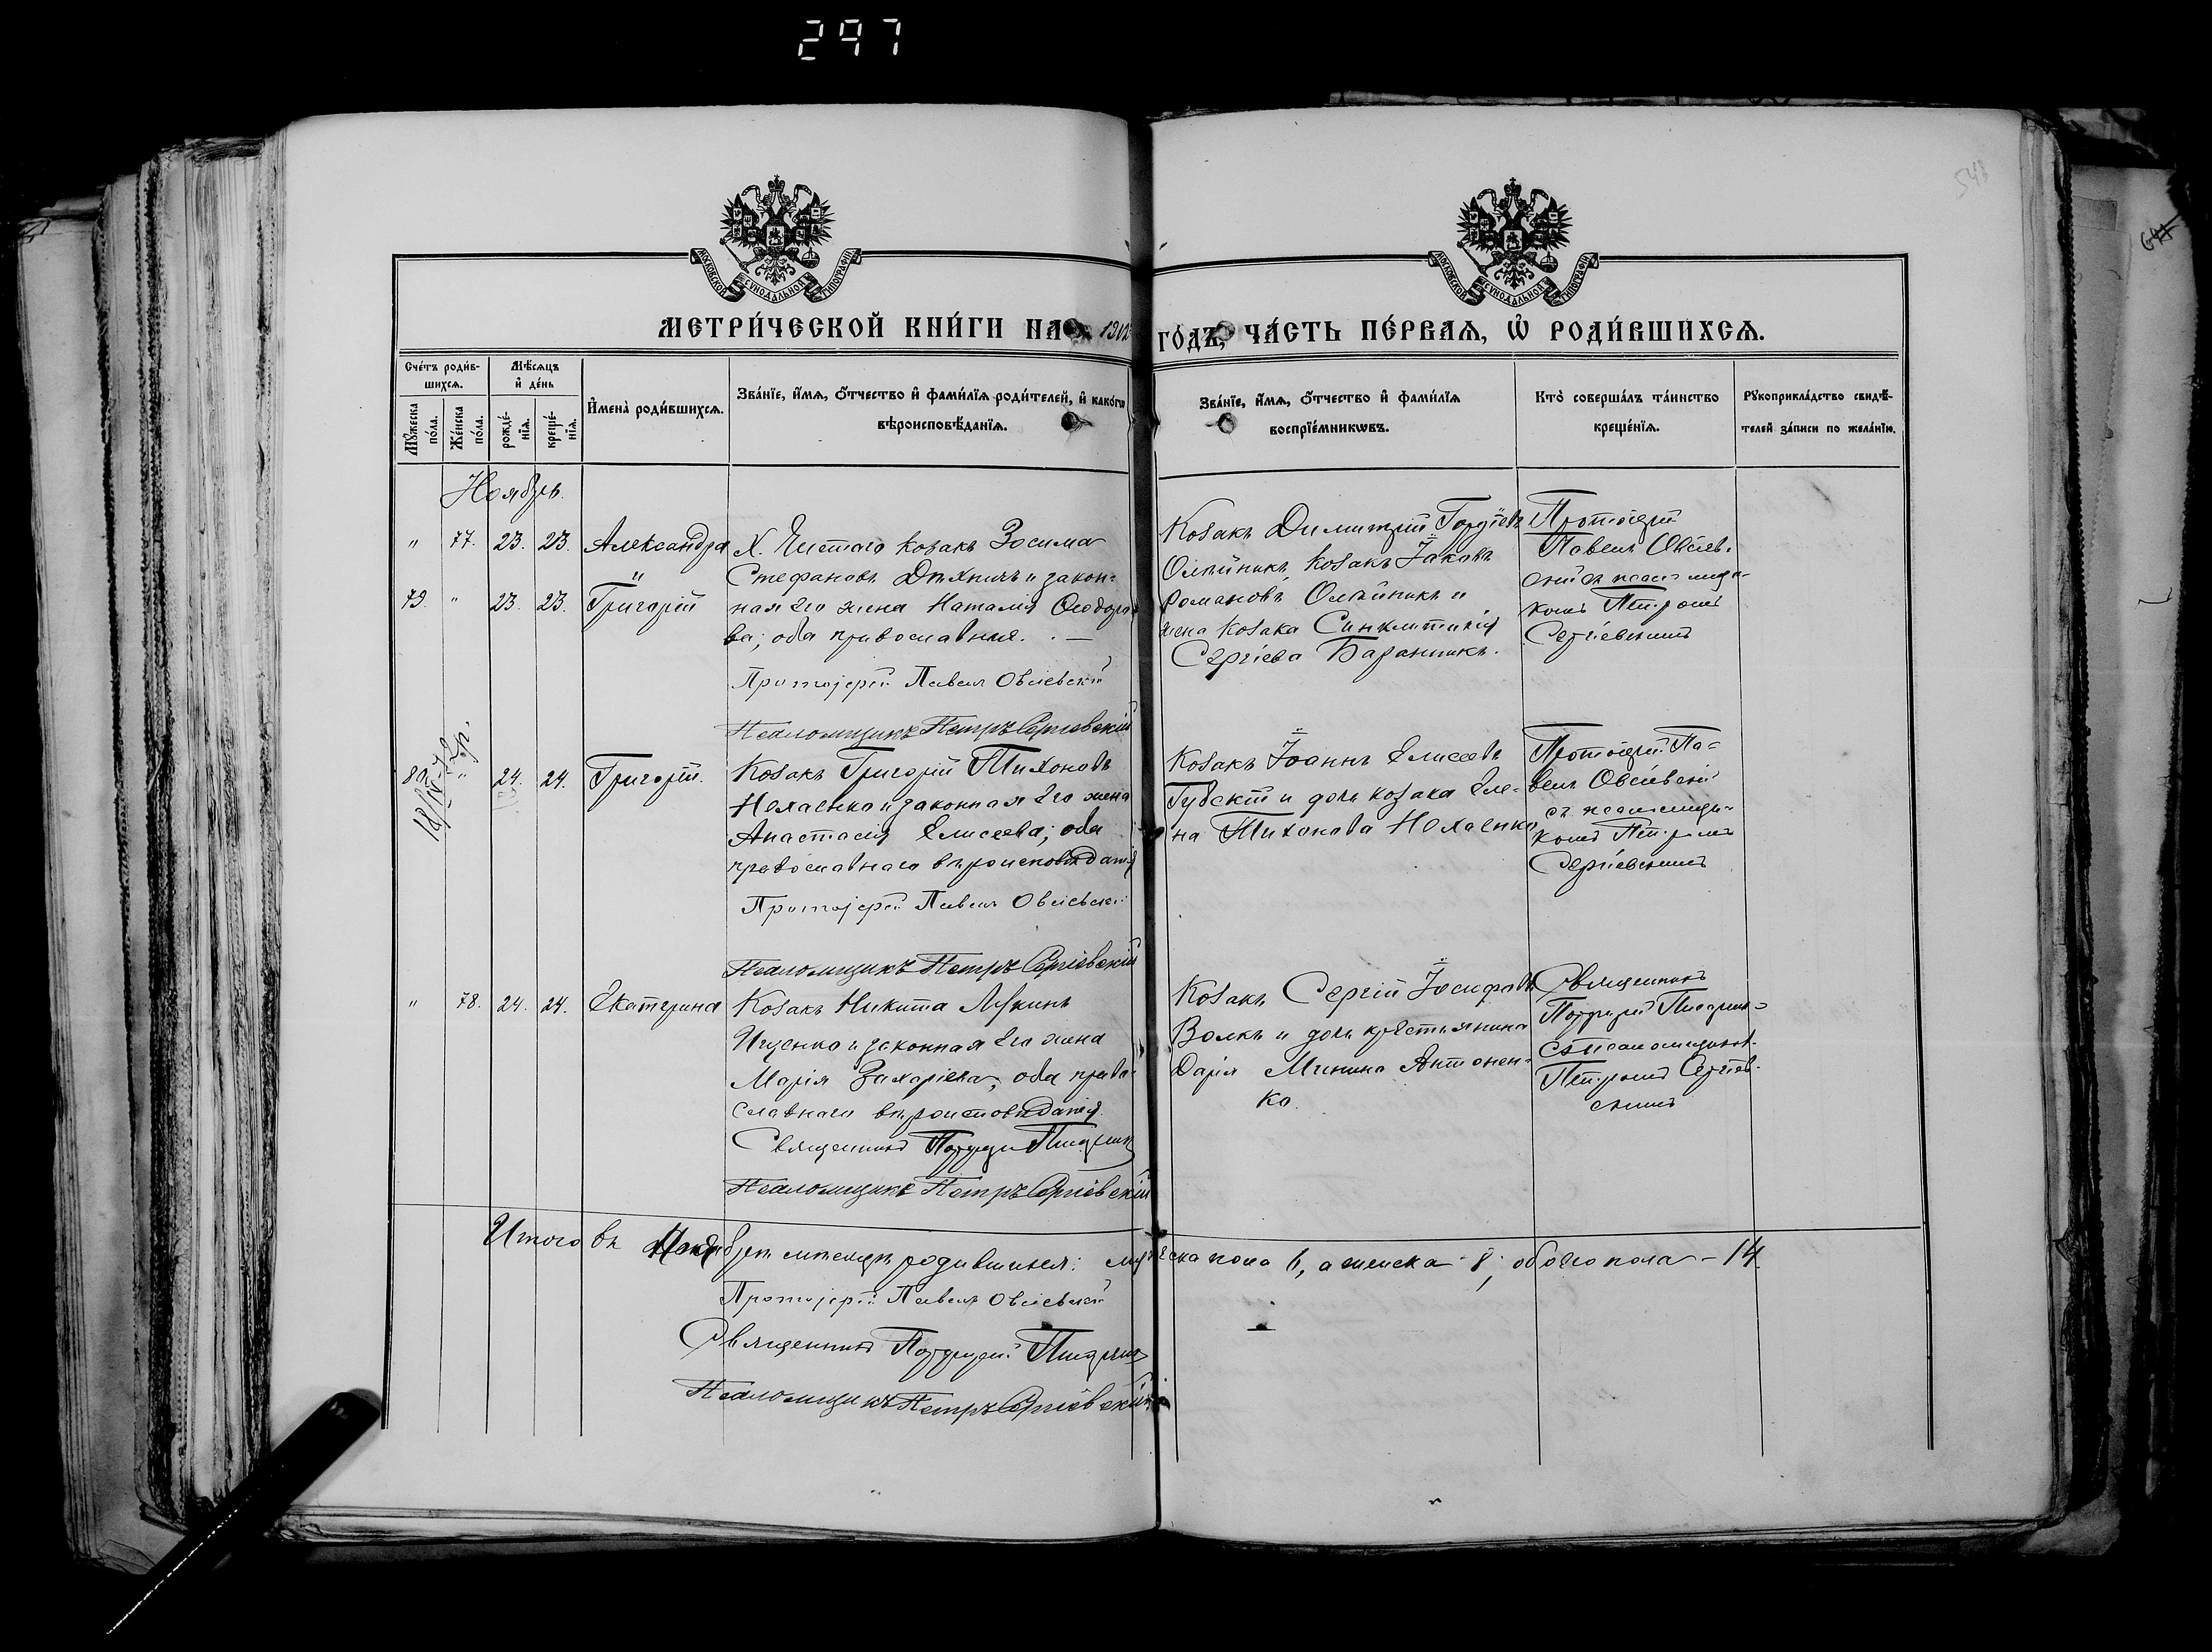 297
548
644
МОСКОВСКОЙ СѴНОДАЛЬНОЙ ТИПОГРАФІИ
МОСКОВСКОЙ СѴНОДАЛЬНОЙ ТИПОГРАФІИ
МЕТРИ́ЧЕСКОЙ КНИ́ГИ НА 1902 ГО́ДЪ, ЧА́СТЬ ПЕ́РВАЯ, Ѡ҆ РОДИ́ВШИХСЯ.
Счетъ роди́в-
шихся.
Мѣсяцъ
и҆ де́нь
Мꙋжеска по́ла.
Же́нска по́ла.
рожде́-
нїя.
креще́-
нїя.
И҆мена̀ роди́вшихся.
Зва́нїе, и҆́мя, ѻ҆́тчество и҆ фами́лїя роди́телей, и҆ како́гѡ
вѣроисповѣ́данїя.
Зва́нїе, и҆́мя, ѻ҆́тчество и҆ фами́лїя
воспрїе́мникѡвъ.
Кто̀ соверша́лъ та́инство
креще́нїя.
Рꙋкоприкла́дство свидѣ́-
телей за́писи по жела́нїю.
Ноябрь.
" 77. 23. 23. Александра
"
79. " 23. 23. Григорій
Х. Чистаго козакъ Зосима
Стефановъ Дяхничъ и закон-
ная его жена Наталія Ѳеодоро-
ва; оба православные. . —
Протоіерей Павелъ Овсіевскій
Псаломщикъ Петръ Сергіевскій
Козакъ Димитрій Гордіевъ
Олѣйникъ, козакъ Іаковъ
Романовъ Олѣйникъ и
жена козака Синклитикія
Сергіева Баранникъ.
Протоіерей
Павелъ Овсіев-
скій съ псаломщи-
комъ Петромъ
Сергіевскимъ
80. " 24. 24. Григорій.
Козакъ Григорій Тихоновъ
Нехаенко и законная его жена
Анастасія Елисеева; оба
православнаго вѣроисповѣданія
Протоіерей Павелъ Овсіевскій
Псаломщикъ Петръ Сергіевскій
Козакъ Іоаннъ Елисеевъ
Губскій и дочь козака Еле-
на Тихонова Нехаенко
Протоіерей Па-
велъ Овсіевскій
съ псаломщи-
комъ Петромъ
Сергіевскимъ
" 78. 24. 24. Екатерина
Козакъ Никита Лукинъ
Ищенко и законная его жена
Марія Захаріева; оба право-
славнаго вѣроисповѣданія.
Священникъ
Псаломщикъ Петръ Сергіевскій
Козакъ Сергій Іосифовъ
Волкъ и дочь крестьянина
Дарія Минина Антонен-
ко.
Священникъ
съ псаломщикомъ
Петромъ Сергіев-
скимъ
Итого въ Ноябрѣ мѣсяцѣ родившихся: мужеска пола 6, а женска - 8; обоего пола - 14.
Протоіерей Павелъ Овсіевскій
Священникъ
Псаломщикъ Петръ Сергіевскій